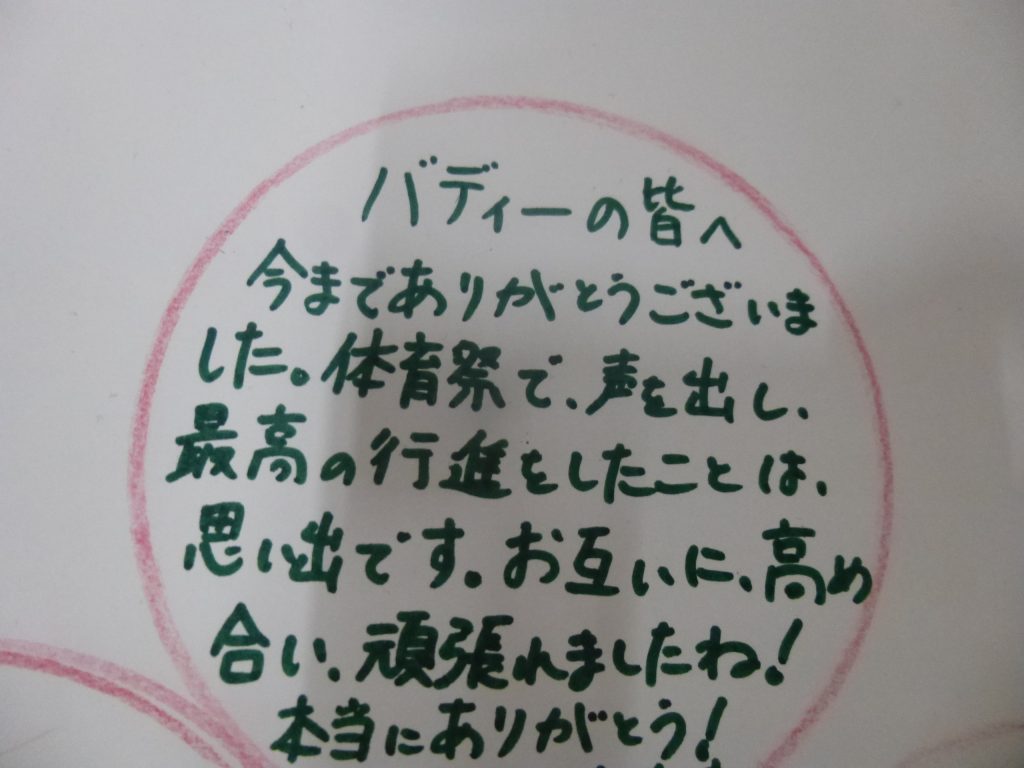 バディーの皆へ
今までありがとうございま
した。体育祭で、声を出し、
最高の行進をしたことは、
思い出です。お互いに、高め
合い、頑張れましたね!
本当にありがとう!